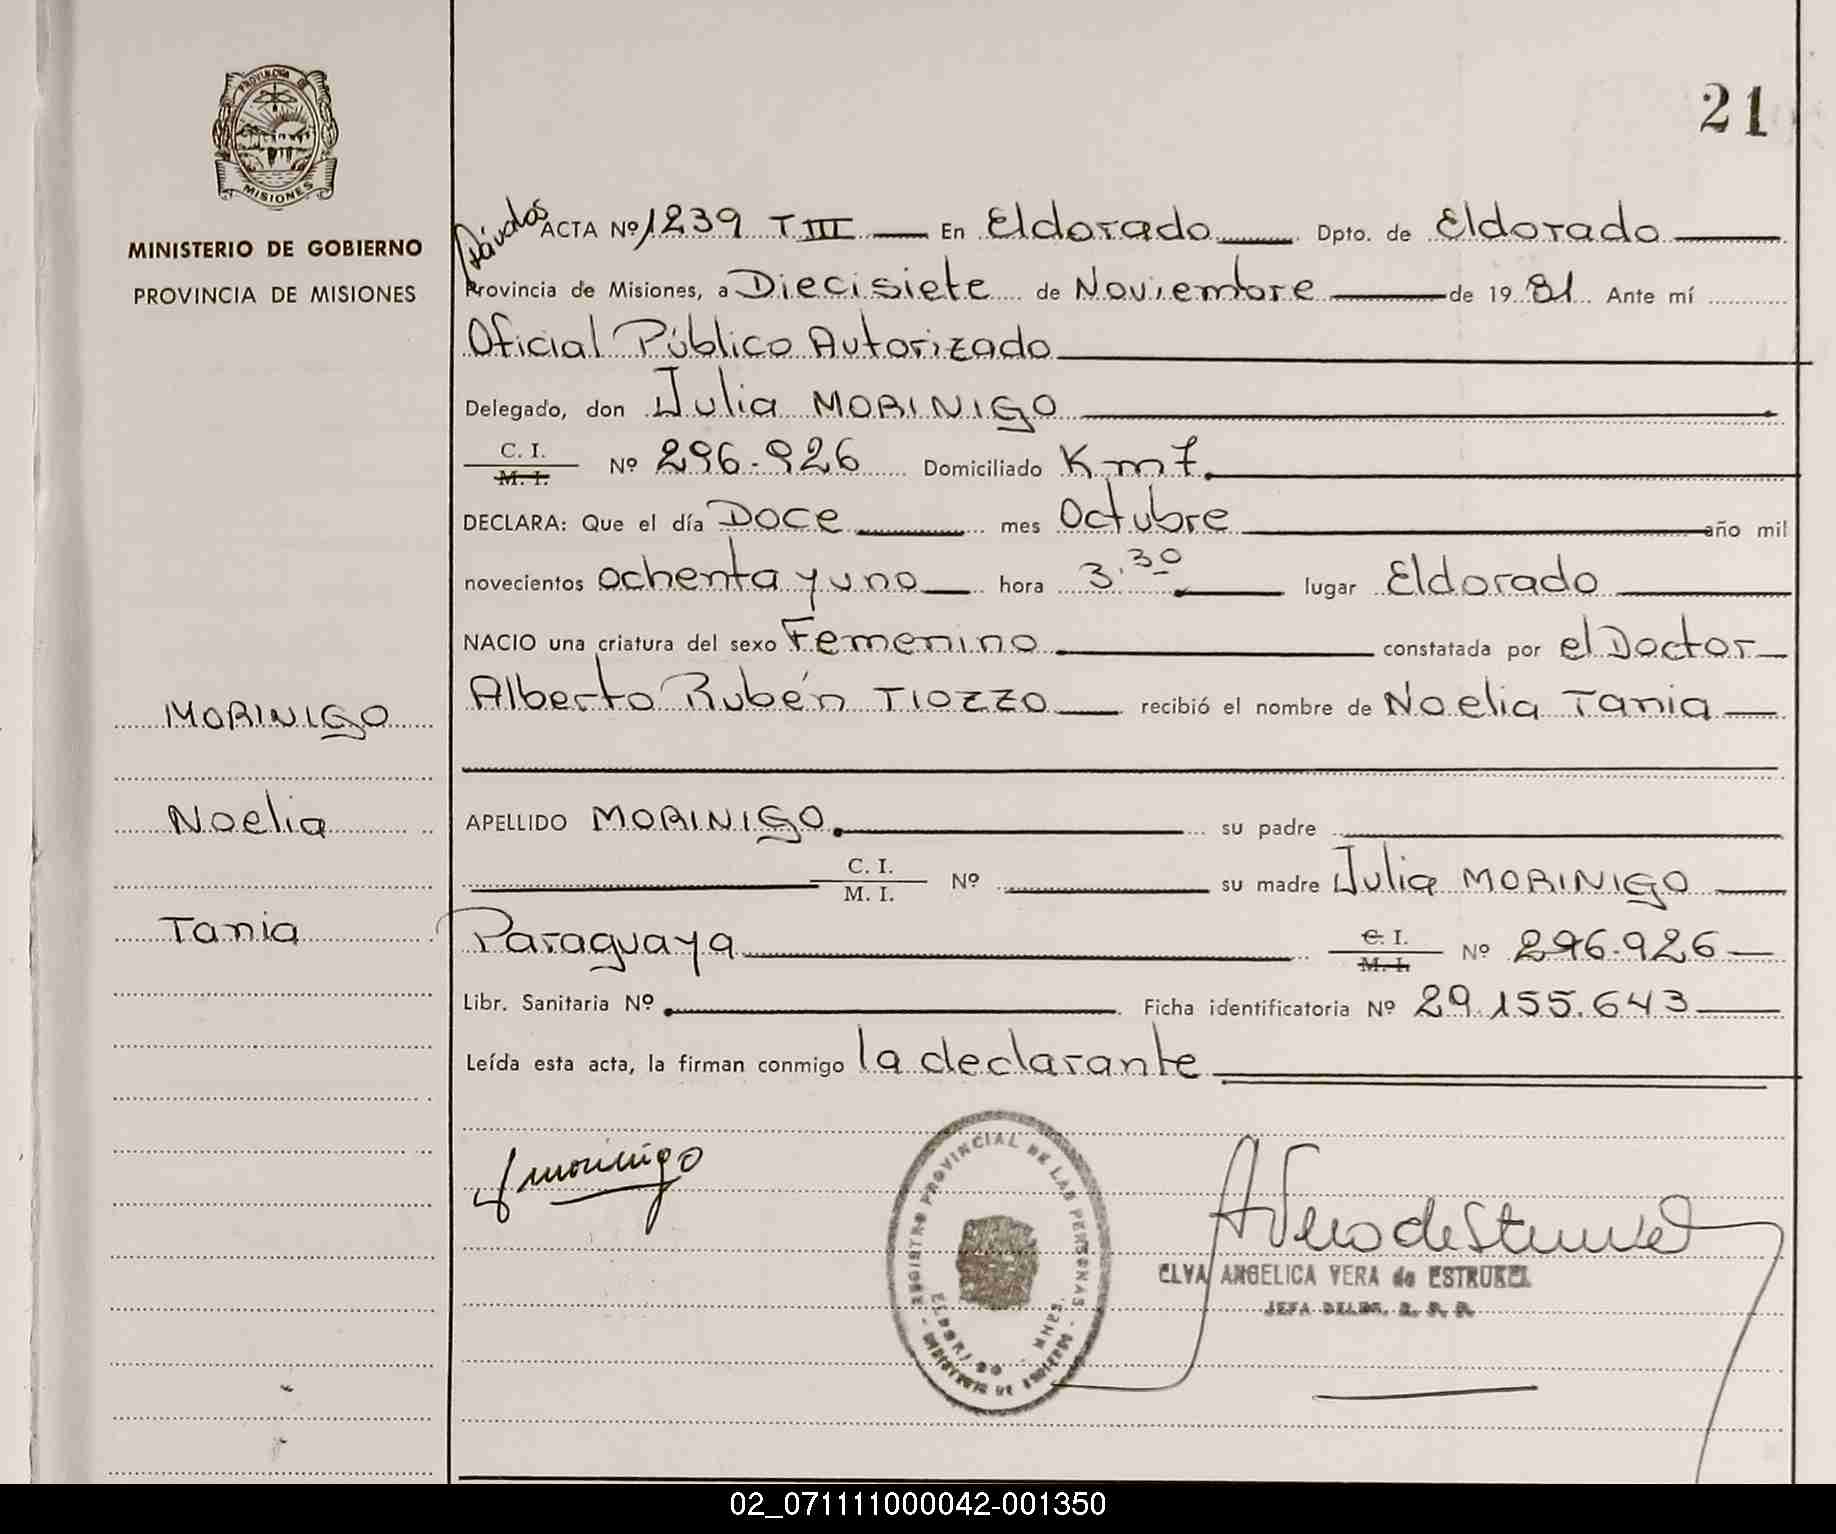 21
PROVINCIA DE
MISIONES
MINISTERIO DE GOBIERNO
PROVINCIA DE MISIONES
MORINIGO
Noelia
Tania
ACTA Nº 1239 T III En Eldorado Dpto. de Eldorado
Provincia de Misiones, a Diecisiete de Noviembre de 19 81 Ante mí
Oficial Público Autorizado
Delegado, don Julia MORINIGO
C. I.
M. I. Nº 296.926 Domiciliado Km 7.
DECLARA: Que el día Doce mes Octubre año mil
novecientos ochenta y uno hora 3.30 lugar Eldorado
NACIO una criatura del sexo Femenino constatada por el Doctor
Alberto Rubén TIOZZO recibió el nombre de Noelia Tania
APELLIDO MORINIGO. su padre
C. I.
M. I. Nº su madre Julia MORINIGO
Paraguaya C. I.
M. I. Nº 296.926
Libr. Sanitaria Nº Ficha identificatoria Nº 29.155.643
Leída esta acta, la firman conmigo la declarante
J morinigo
REGISTRO PROVINCIAL DE LAS PERSONAS
ELDORADO MNES.
AVera de Estrukel
ELVA ANGELICA VERA de ESTRUKEL
JEFA DELEG. R. P. P.
02_071111000042-001350